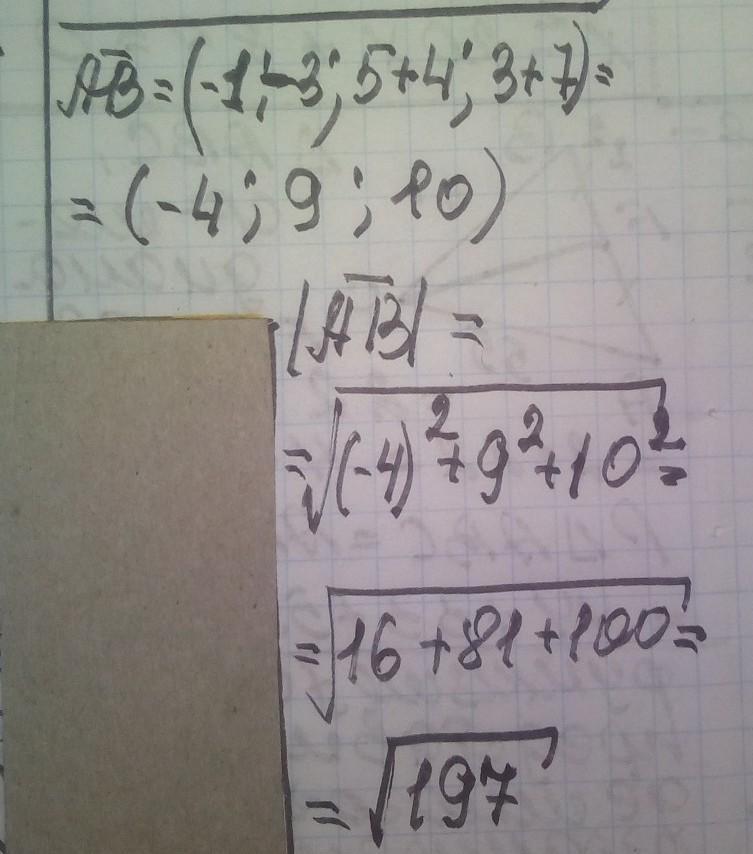 AB̅ = (-1-3; 5+4; 3+7) =
= (-4; 9; 10)
|AB̅| =
= √((-4)² + 9² + 10²) =
= √(16 + 81 + 100) =
= √197